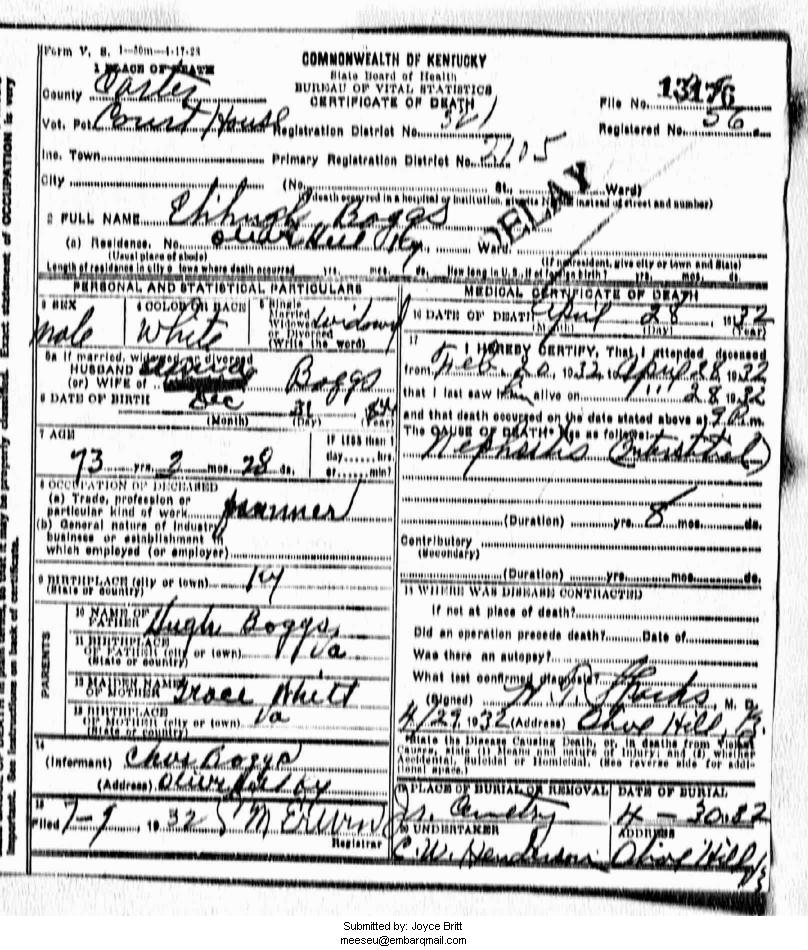 Form V. S. 1-50m-4-17-28
COMMONWEALTH OF KENTUCKY
State Board of Health
BUREAU OF VITAL STATISTICS
CERTIFICATE OF DEATH
1 PLACE OF DEATH
County Carter
Vot. Pct Court House
Registration District No.
File No. 13176
Registered No. 56
Inc. Town
Primary Registration District No. 2705
City (No. St., Ward)
(If death occurred in a hospital or institution, give its NAME instead of street and number)
DELAY
2 FULL NAME Elihugh Boggs
(a) Residence. No. Olive Hill Ky Ward
(Usual place of abode) (If nonresident, give city or town and State)
Length of residence in city or town where death occurred yrs. mos. ds. How long in U. S., if of foreign birth? yrs. mos. ds.
PERSONAL AND STATISTICAL PARTICULARS
3 SEX Male
4 COLOR OR RACE White
5 Single Married Widowed or Divorced (Write the word) Widowed
5a If married, widowed, or divorced
HUSBAND
(or) WIFE of Boggs
6 DATE OF BIRTH Dec 31
(Month) (Day) (Year)
7 AGE
73 yrs. 2 mos. 28 ds.
IF LESS than 1 day hrs. or min?
8 OCCUPATION OF DECEASED
(a) Trade, profession or particular kind of work farmer
(b) General nature of industry business or establishment in which employed (or employer)
9 BIRTHPLACE (city or town) Ky
(State or country)
PARENTS
10 NAME OF FATHER Hugh Boggs
11 BIRTHPLACE OF FATHER (city or town) Va
(State or country)
12 MAIDEN NAME OF MOTHER Grace Whitt
13 BIRTHPLACE OF MOTHER (city or town) Va
(State or country)
14
(Informant) Boggs
(Address) Olive Hill Ky
15
Filed 7-9, 1932
Registrar
MEDICAL CERTIFICATE OF DEATH
16 DATE OF DEATH April 28 1932
(Month) (Day) (Year)
17
I HEREBY CERTIFY, That I attended deceased
from Feb 20, 1932 to April 28, 1932
that I last saw him alive on 28 1932
and that death occurred on the date stated above at 9 P. m.
The CAUSE OF DEATH* was as follows:
Nephritis (Interstitial)
(Duration) yrs. 8 mos. ds.
Contributory
(Secondary)
(Duration) yrs. mos. ds.
18 WHERE WAS DISEASE CONTRACTED
If not at place of death?
Did an operation precede death? Date of
Was there an autopsy?
What test confirmed diagnosis?
(Signed) M. D.
4/29 1932 (Address) Olive Hill, Ky.
*State the Disease Causing Death, or, in deaths from Violent
Causes, state (1) Means and Nature of Injury; and (2) whether
Accidental, Suicidal or Homicidal. (See reverse side for addi-
tional space.)
19 PLACE OF BURIAL OR REMOVAL
DATE OF BURIAL
4 - 30.32
20 UNDERTAKER
C. W. Henderson
ADDRESS
Olive Hill Ky
Exact statement of OCCUPATION is very
important. See instructions on back of certificate.
Submitted by: Joyce Britt
meeseu@embarqmail.com